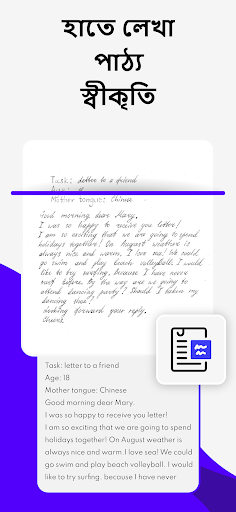 হাতে লেখা
পাঠ্য
স্বীকৃতি
Task: letter to a friend
Mither tongue: Chinese
Good morning dear Mary.
I was so happy to receive you letter!
I am so exciting that we are going to spend
holidays together! On August weather is
always nice and warm. I love sea! We could
go swim and play beach volleyball. I would
like to try surfing, because I have never
surf before. By the way are we going to
attend dancing party? Should I taken my
dancing shoe?
Looking forward your reply.
Task: letter to a friend
Age: 18
Mother tongue: Chinese
Good morning dear Mary.
I was so happy to receive you letter!
I am so exciting that we are going to spend
holidays together! On August weather is
always nice and warm.I love sea! We could
go swim and play beach volleyball. I would
like to try surfing. because I have never